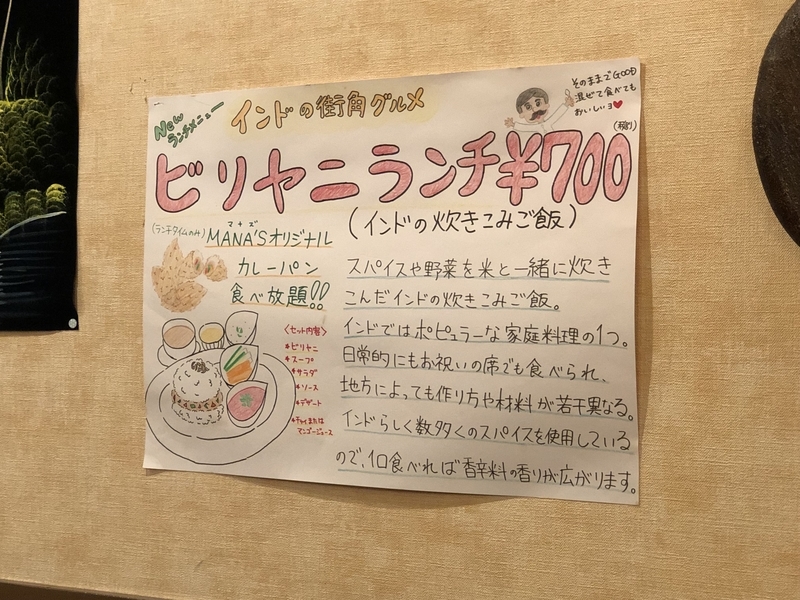 New
ランチメニュー
インドの街角グルメ
そのままでGOOD
混ぜて食べても
おいしいヨ♥
ビリヤニランチ¥700
(税別)
(インドの炊きこみご飯)
(ランチタイムのみ)
マナズ
MANA'Sオリジナル
カレーパン
食べ放題!!
<セット内容>
*ビリヤニ
*スープ
*サラダ
*ソース
*デザート
*チャイまたは
マンゴージュース
スパイスや野菜を米と一緒に炊き
こんだインドの炊きこみご飯。
インドではポピュラーな家庭料理の1つ。
日常的にもお祝いの席でも食べられ、
地方によっても作り方や材料が若干異なる。
インドらしく数多くのスパイスを使用している
ので、1口食べれば香辛料の香りが広がります。